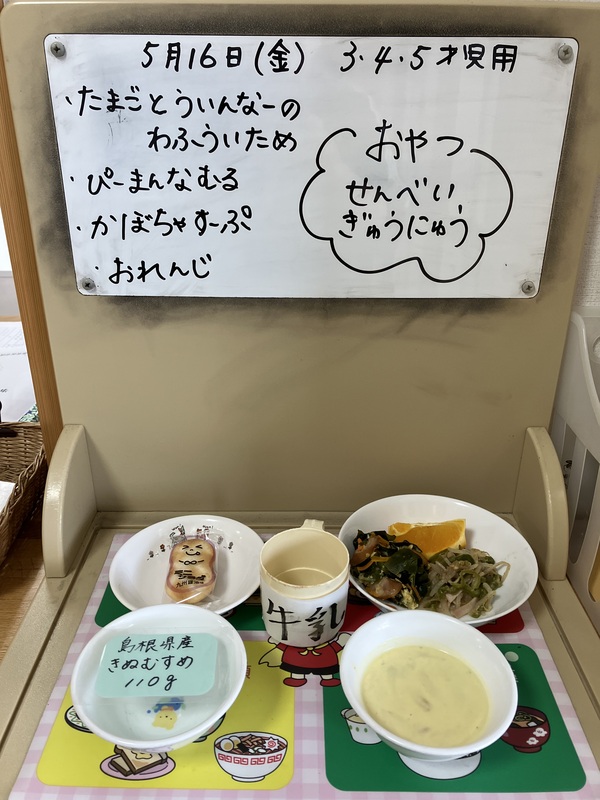 5月16日(金) 3・4・5才児用
・たまごとういんなーの
わふういため
・ぴーまんなむる
・かぼちゃすーぷ
・おれんじ
おやつ
せんべい
ぎゅうにゅう
牛乳
島根県産
きぬむすめ
110g